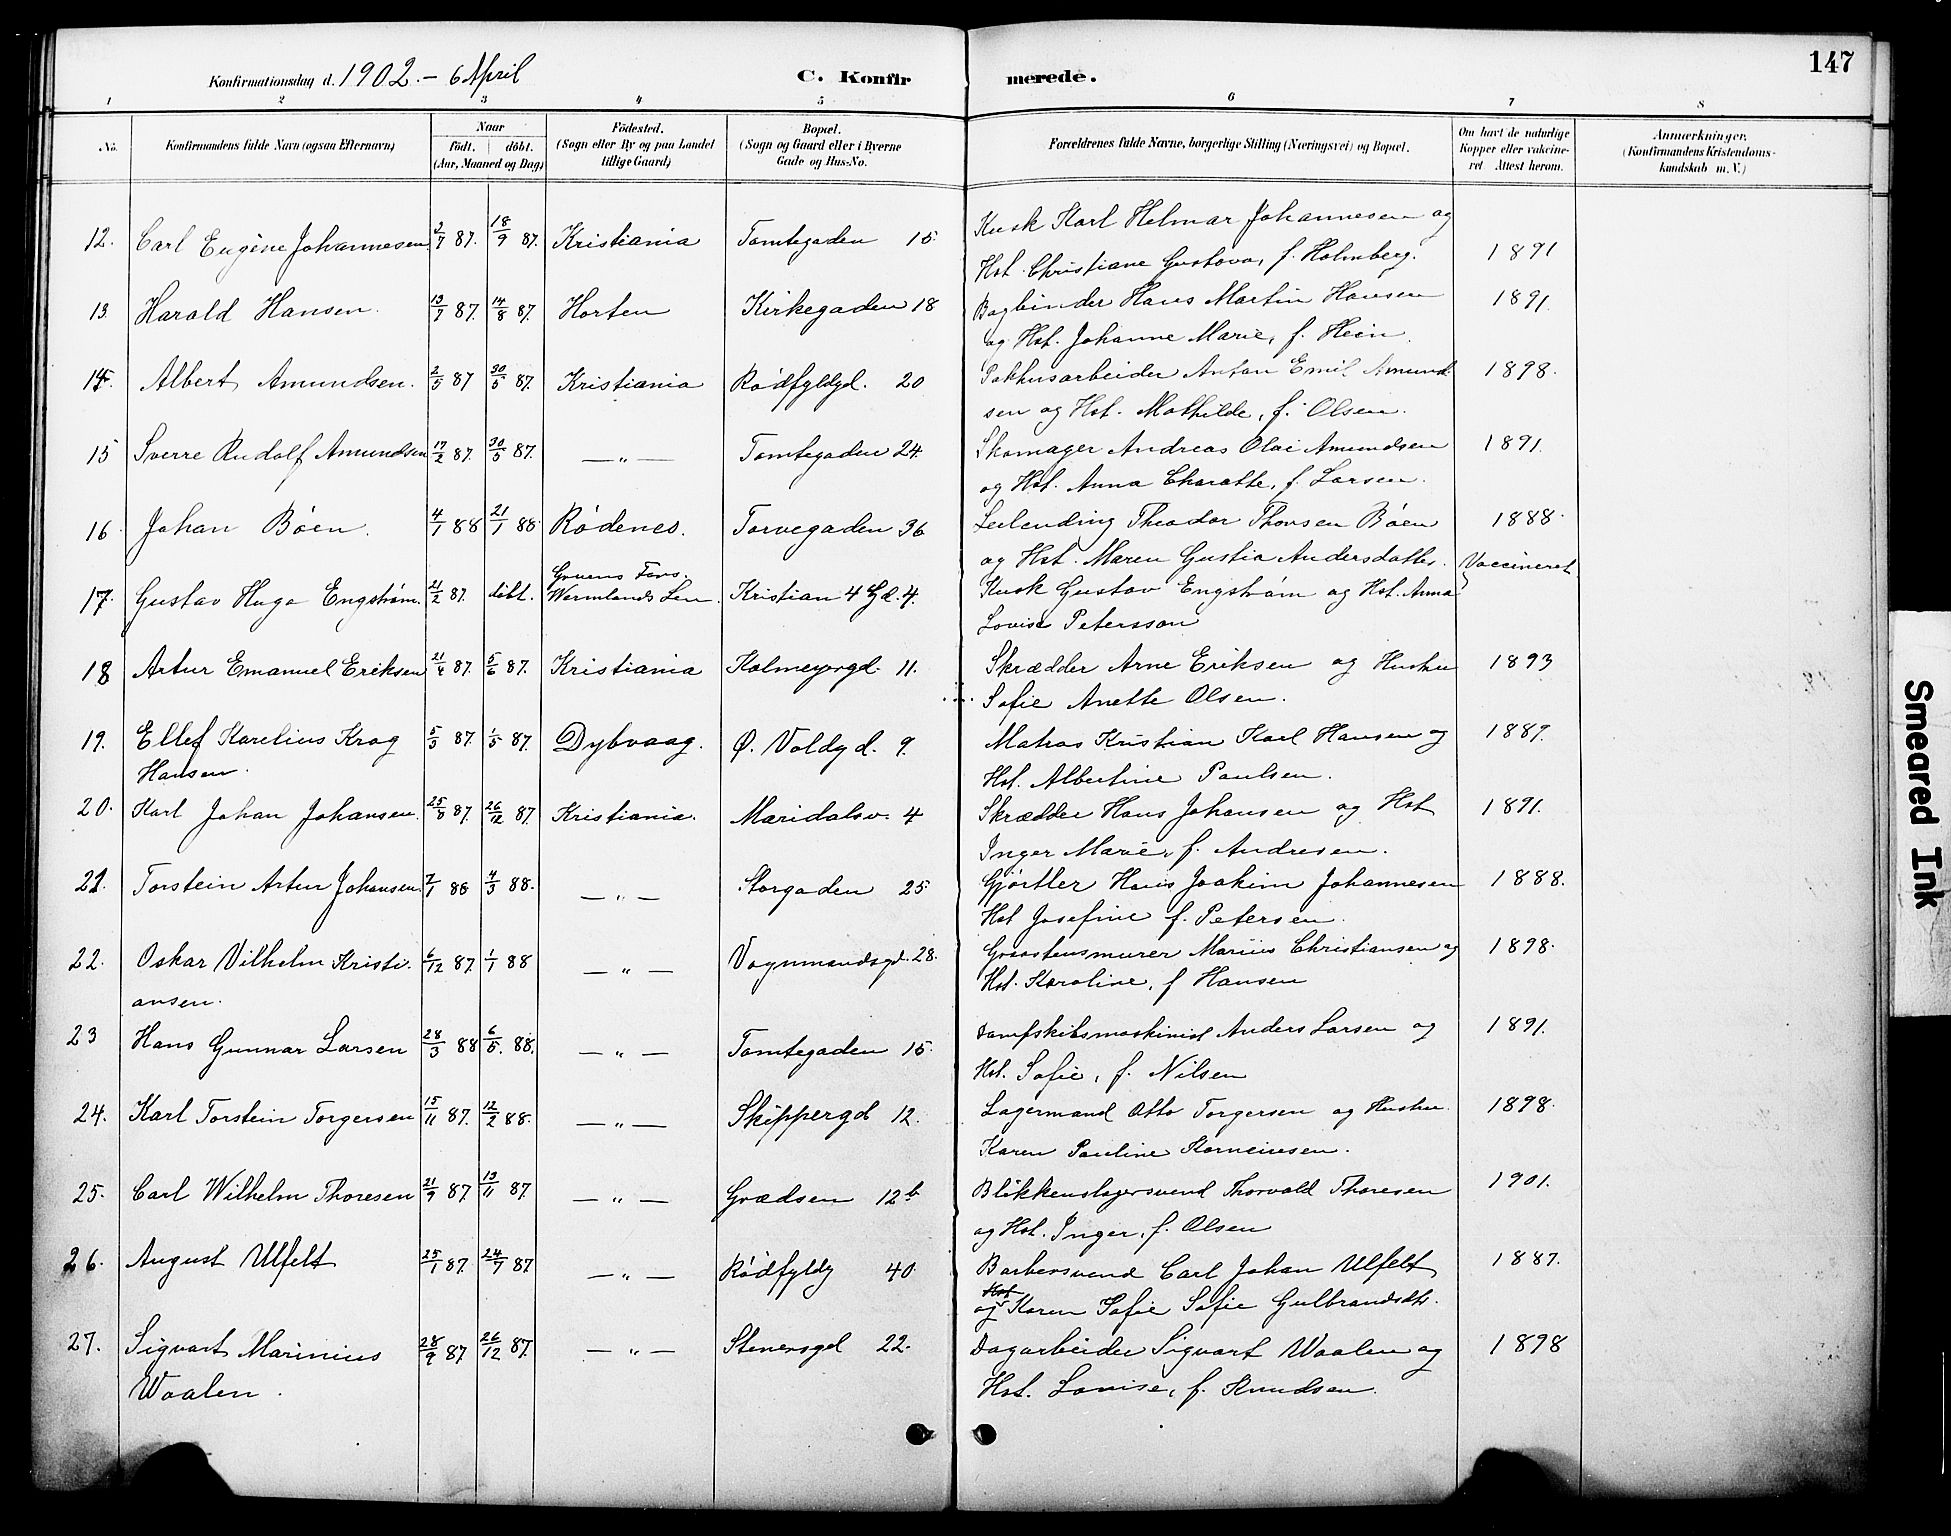 147
Konfirmationsdag d. 1902. - 6 April
C. Konfirmerede.
1 2 3 4 5 6 7 8
No.
Konfirmandens fulde Navn (ogsaa Efternavn)
Naar
födt. döbt.
(Aar, Maaned og Dag)
Födested.
(Sogn eller By og paa Landet
tillige Gaard)
Bopæl.
(Sogn og Gaard eller i Byerne
Gade og Hus-No.
Forældrenes fulde Navne, borgerlige Stilling (Næringsvei) og Bopæl.
Om havt de naturlige
Kopper eller vaccine-
ret. Attest herom.
Anmærkninger.
(Konfirmandens Kristendoms-
kundskab m. V.)
12. Carl Eugène Johannesen 2/7 87. 18/9 87. Kristiania Tomtegaden 15. Kusk Karl Helmar Johannesen og
Hst. Christiane Gustova, f. Holmberg. 1891
13. Harald Hansen. 13/7 87. 14/8 87. Horten Kirkegaden 18 Bogbinder Hans Martin Hansen 1891.
og Hst. Johanne Marie, f. Hein.
14. Albert Amundsen. 2/5 87 30/5 87. Kristiania Rødfyldgd. 20 Pakhusarbeider Anton Emil Amund- 1898.
sen og Hst. Mathilde, f. Olsen.
15 Sverre Rudolf Amundsen 17/2 87. 30/5 87. — " — Tomtegaden 24. Skomager Andreas Olai Amundsen 1891.
og Hst. Anna Charotte, f. Larsen.
16. Johan Böen. 4/1 88 21/1 88. Rödenes. Torvegaden 36 Leilending Theodor Thorsen Böen 1888.
og Hst. Maren Gustia Andersdatter. Vaccineret
17. Gustav Hugo Engstrøm. 21/2 87. döbt. Gruens Fors.
Wermlands Len. Kristian 4 Gd. 4. Kusk Gustav Engstrøm og Hst. Anna
Lovise Petersson
18 Artur Emanuel Eriksen 21/4 87. 5/6 87. Kristiania Kolmeyergd. 11. Skrædder Arne Eriksen og Hustru 1893
Sofie Anette Olsen.
19. Ellef Karelius Krog 5/3 87. 1/5 87. Dybvaag. Ø. Voldgd. 9. Matros Kristian Karl Hansen og 1889.
Hansen. Hst. Albertine Paulsen.
20. Karl Johan Johansen. 25/8 87. 26/12 87. Kristiania. Maridalsv. 4 Skrædder Hans Johansen og Hst 1891.
Inger Marie, f. Andresen.
21. Torstein Artur Johansen 7/1 88 4/3 88. — " — Storgaden 25. Gjørtler Hans Joakim Johannesen 1888.
Hst Josefine f. Petersen.
22. Oskar Vilhelm Kristi- 6/12 87. 1/1 88 — " — Vognmandsgd. 28. Graastensmurer Marius Christiansen og 1898.
ansen. Hst. Karoline, f Hansen
23 Hans Gunnar Larsen 28/3 88 6/5. 88. — " — Tomtegaden 15. Damfskibsmaskinist Anders Larsen og 1891.
Hst. Sofie, f. Nilsen
24. Karl Torstein Torgersen 15/11 87. 12/2 88. — " — Skippergd 12. Lagermand Otto Torgersen og Hustru. 1898.
Karen Pauline
25. Carl Wilhelm Thoresen 21/9 87 13/11 87 — " — Grædsen 12b Blikkenslagersvend Thorvald Thoresen 1901.
og Hst. Inger, f. Olsen
26. August Ulfelt 25/1 87. 24/7 87 — " — Rødfyldg 40. Barbersvend Carl Johan Ulfelt 1887.
og Karen Sofie Sofie Gulbrandsdtr.
27. Sigvart Marinius 28/9 87 26/12 87. — " — Stenersgd 22. Dagarbeider Sigvart Waalen og 1898
Waalen. Hst. Lovise, f. Knudsen.
Smeared Ink